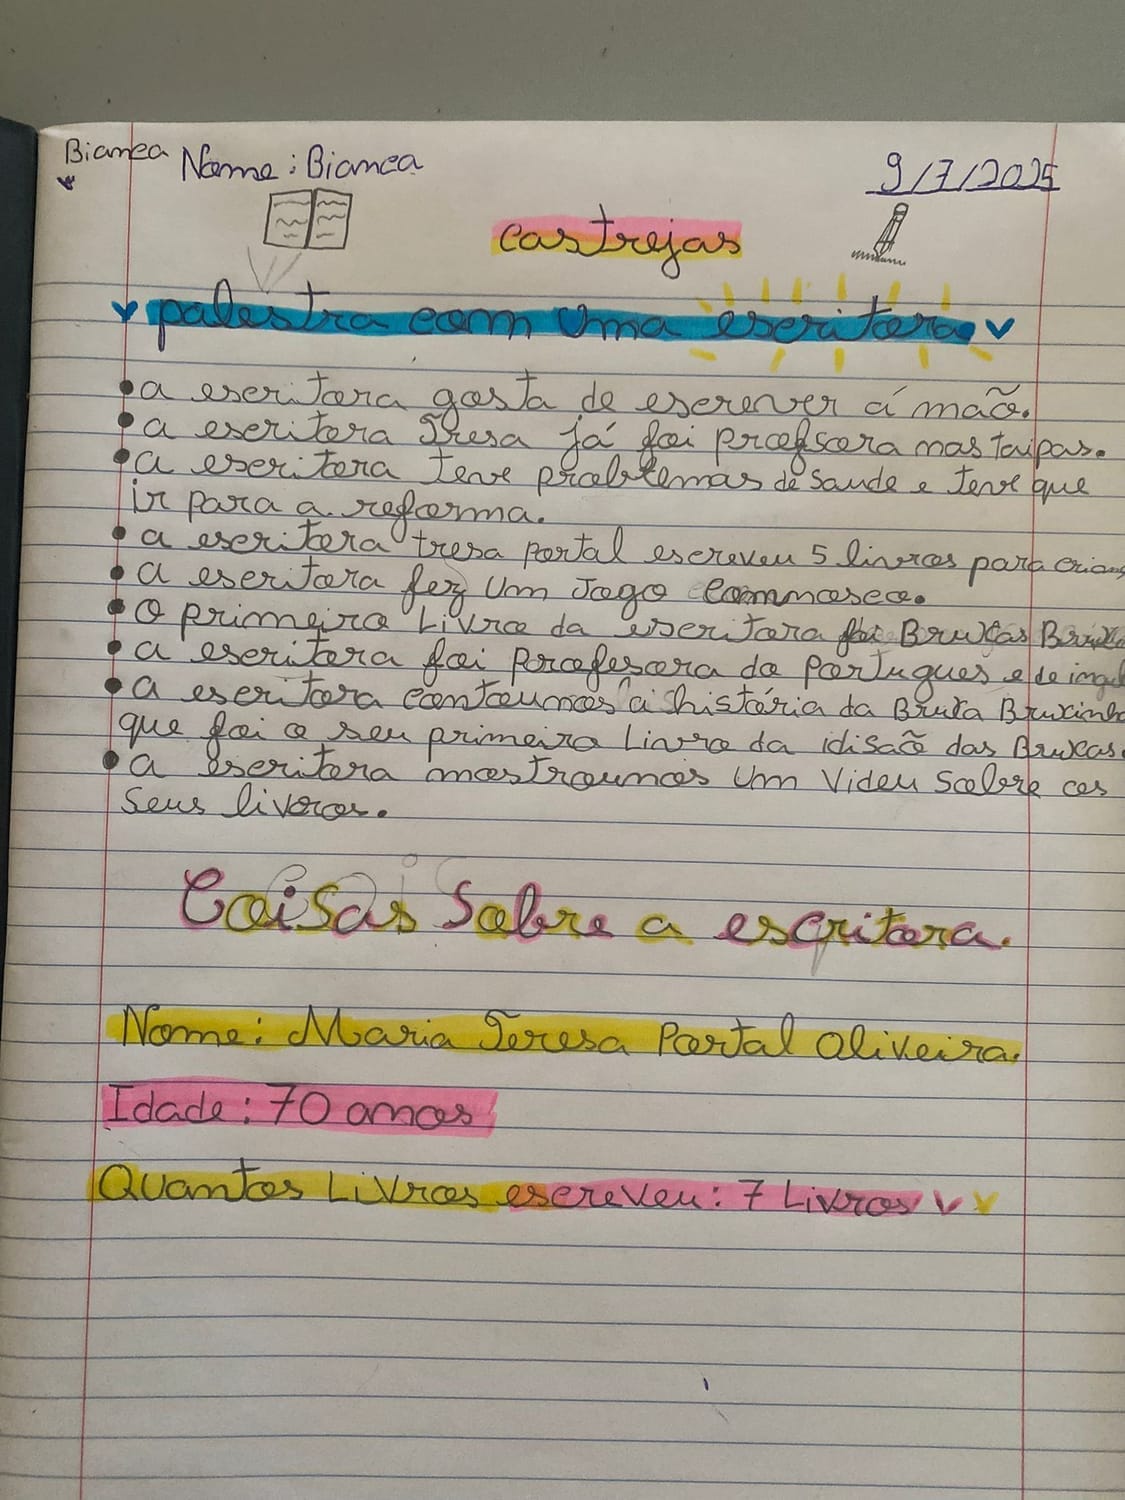 Bianca Nome: Bianca
9/7/2025
castrejas
palestra com uma escritora
• a escritora gosta de escrever á mão.
• a escritora Tresa já foi profscora nas taipas.
• a escritora teve problemas de saude e teve que
ir para a reforma.
• a escritora tresa portal escreveu 5 livros para
• a escritora fez um Jogo Connosco.
• o primeiro Livro da escritora foi Bruxas
• a escritora foi profesora do Portugues e de
• a escritora contounos a história da Bruxa Bruxinha
que foi o seu primeiro Livro da idisão das Bruxas.
• a escritora mostrounos um Videu Sobre os
seus livros.
Coisas Sobre a escritora.
Nome: Maria Teresa Portal Oliveira.
Idade: 70 anos
Quantos Livros escreveu: 7 Livros